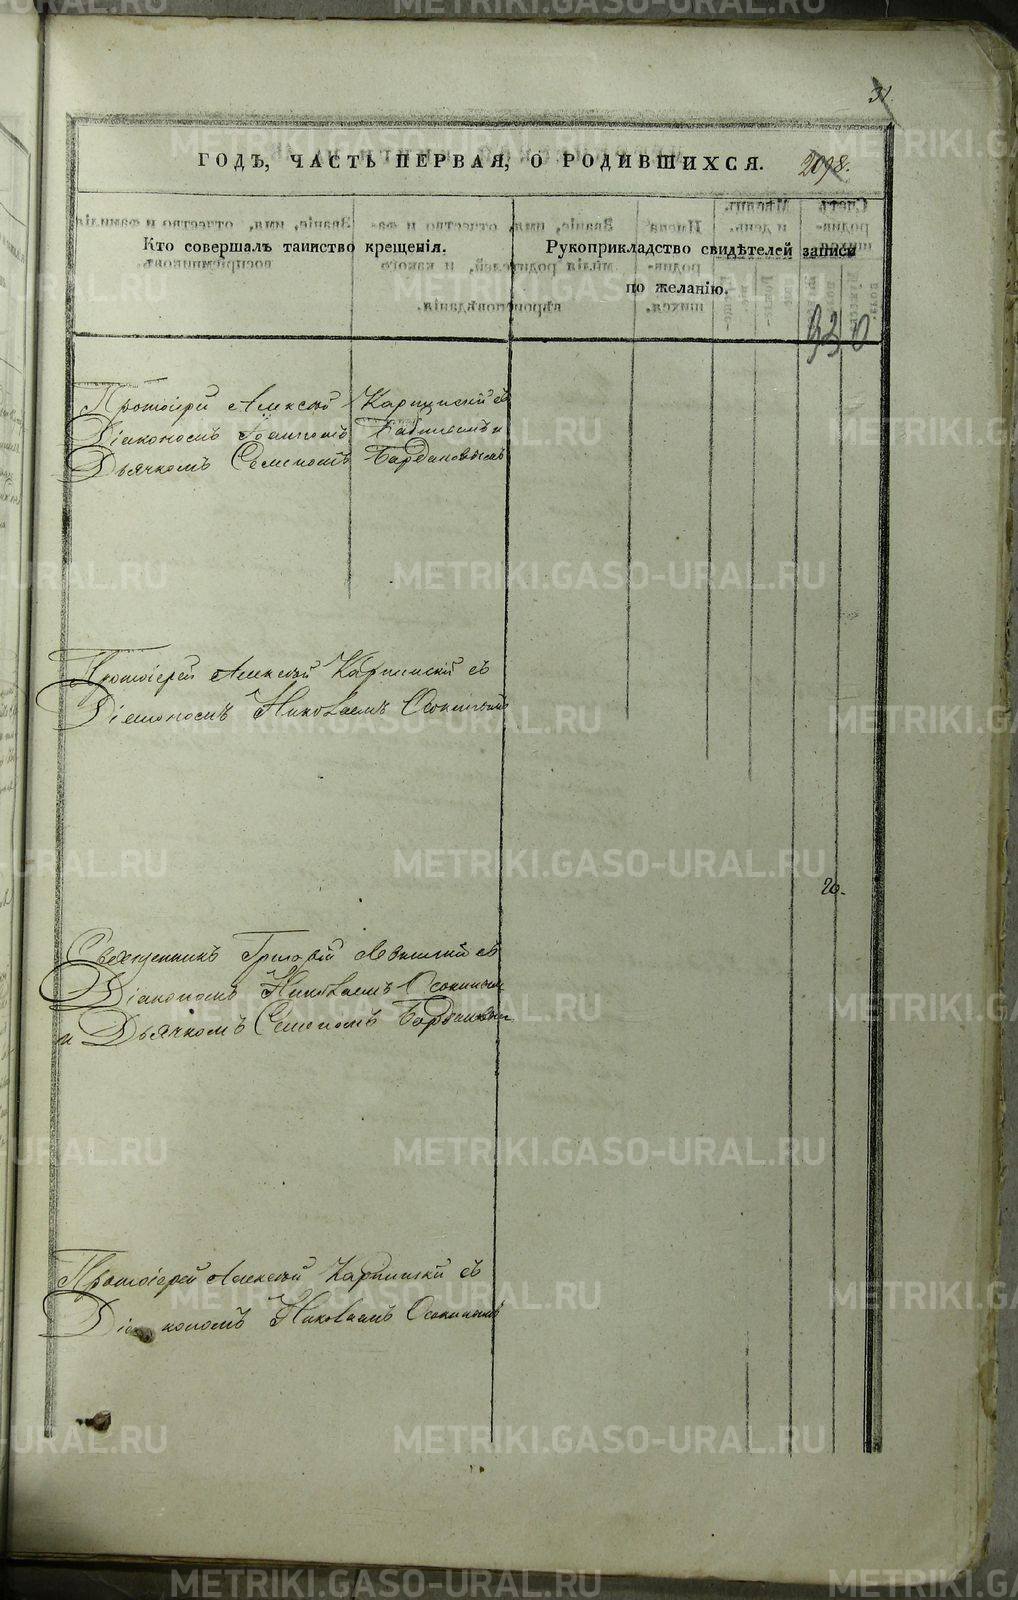 31
ГОДЪ, ЧАСТЬ ПЕРВАЯ, О РОДИВШИХСЯ. 2098.
Кто совершалъ таинство крещенія.
Рукоприкладство свидѣтелей записи
по желанію.
930
Протоіерей Алексѣй Карпинскій съ
Діакономъ и
Дьячкомъ Семеномъ
Протоіерей Алексѣй Карпинскій съ
Діакономъ Николаемъ Осокинымъ
Священникъ Григорій съ
Діакономъ Николаемъ Осокинымъ
и Дьячкомъ Семеномъ
Протоіерей Алексѣй Карпинскій съ
Діакономъ Николаемъ Осокинымъ
METRIKI.GASO-URAL.RU